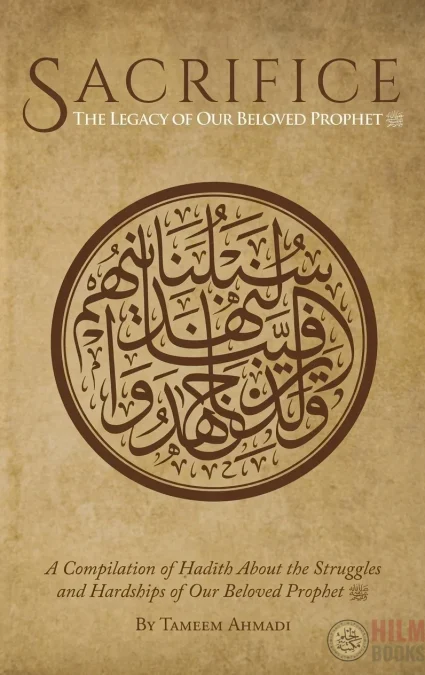 SACRIFICE
THE LEGACY OF OUR BELOVED PROPHET ﷺ
وَالَّذِينَ جَاهَدُوا فِينَا لَنَهْدِيَنَّهُمْ سُبُلَنَا
A Compilation of Hadīth About the Struggles
and Hardships of Our Beloved Prophet ﷺ
BY TAMEEM AHMADI
HILM
BOOKS